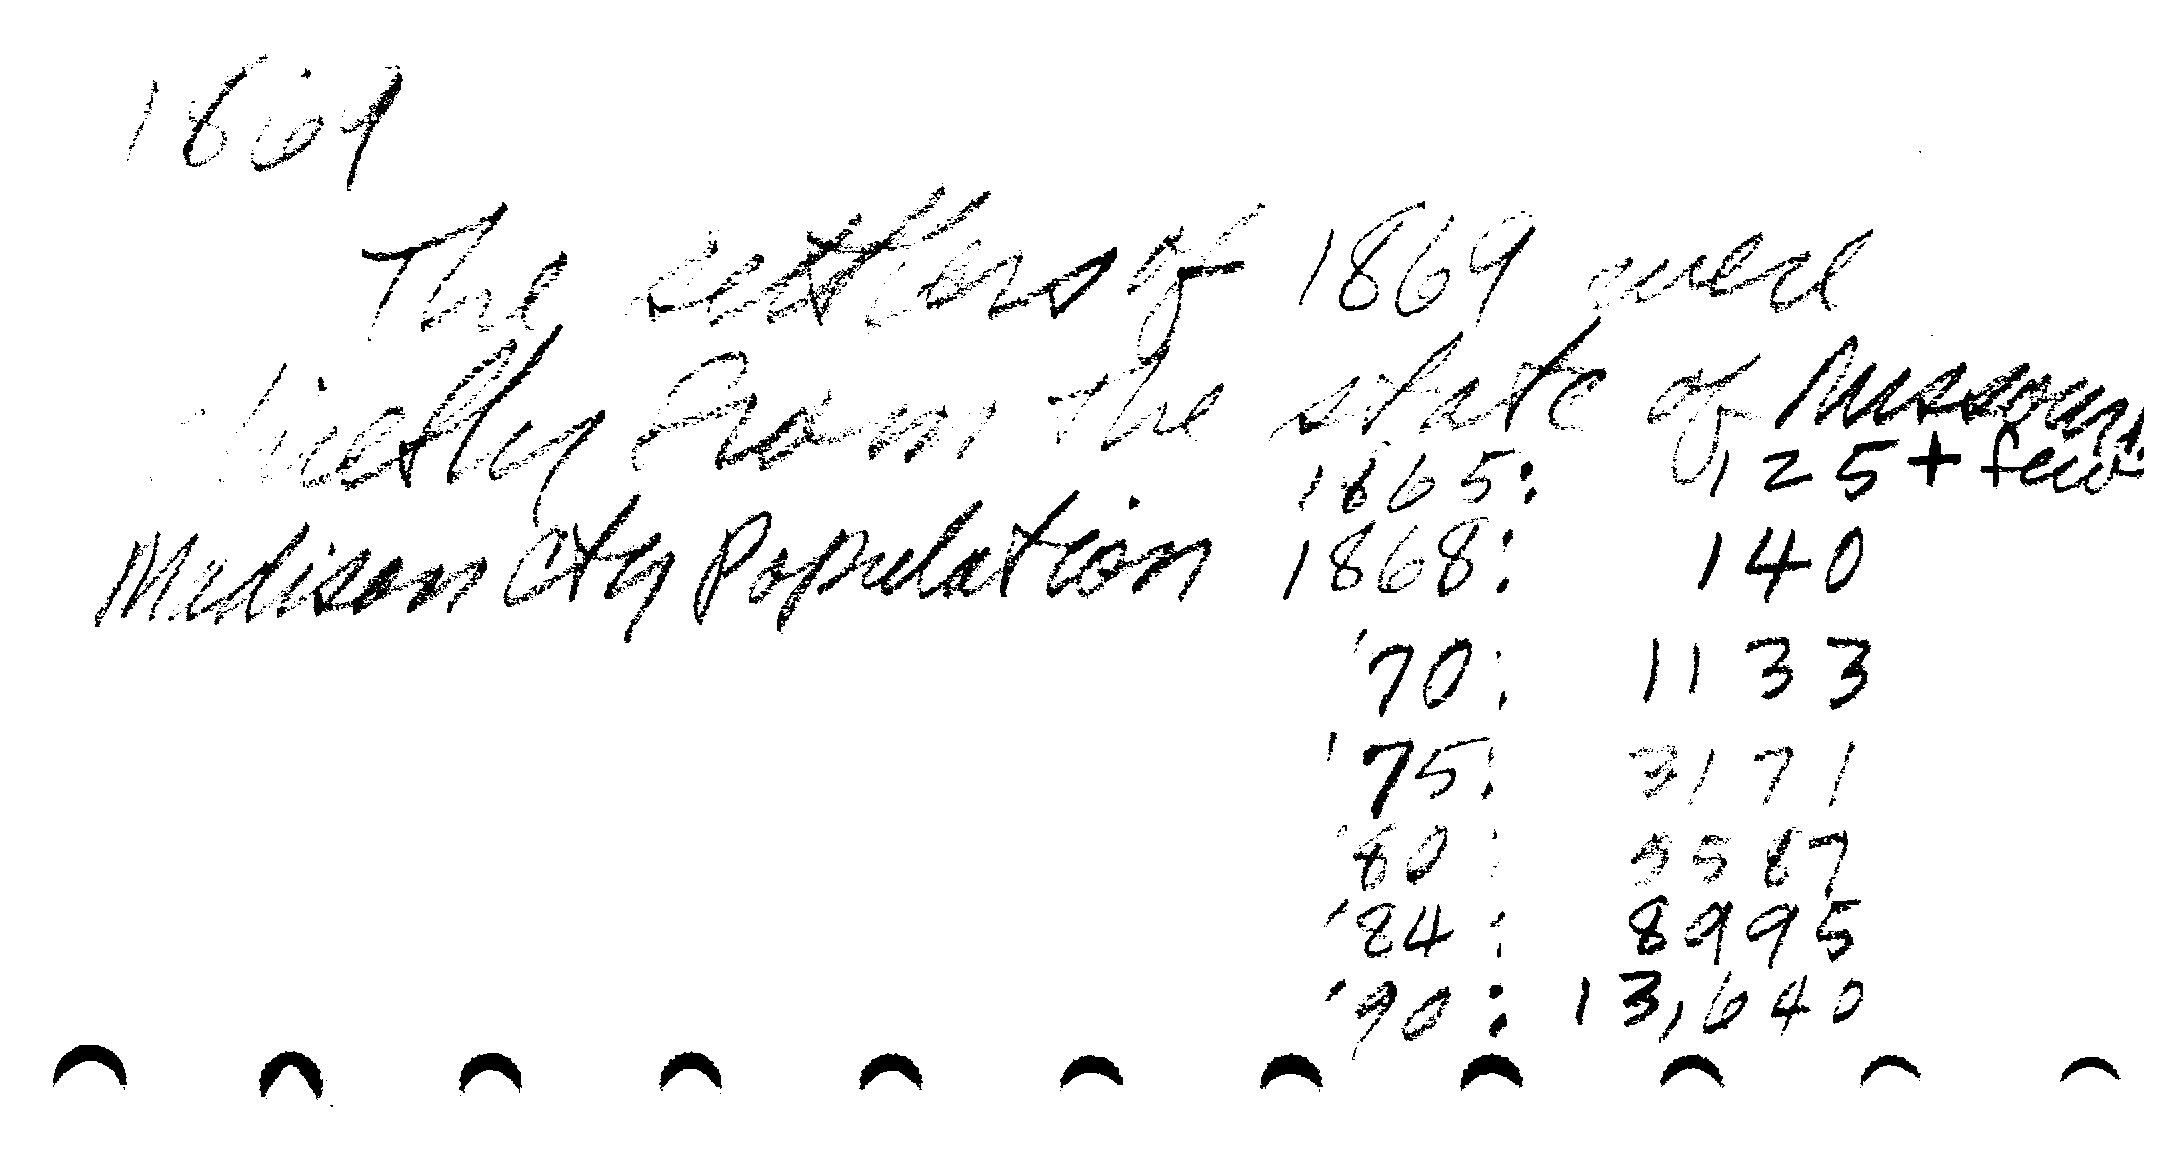 1869
The settlers of 1869 were
chiefly from the state of Missouri.
1865: 125 + few
Madison City Population 1868: 140
'70: 1133
'75: 3171
'80: 5587
'84: 8995
'90: 13,640